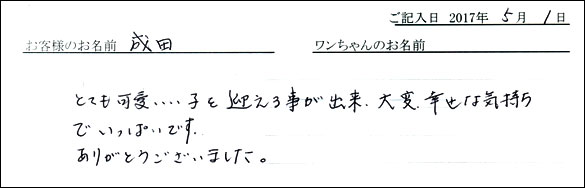 ご記入日 2017年 5月 1日
お客様のお名前 成田 ワンちゃんのお名前
とても可愛いいい子を迎える事が出来、大変、幸せな気持ち
でいっぱいです。
ありがとうございました。